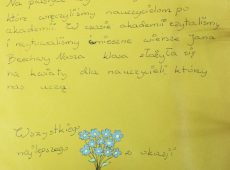 które wręczyliśmy nauczycielom po
akademii. W czasie akademii czytaliśmy
i śmieszne wiersze Jana
Brzechwy. Nasza klasa złożyła się
na kwiaty dla nauczycieli, którzy
nas uczą
Wszystkiego
najlepszego z okazji